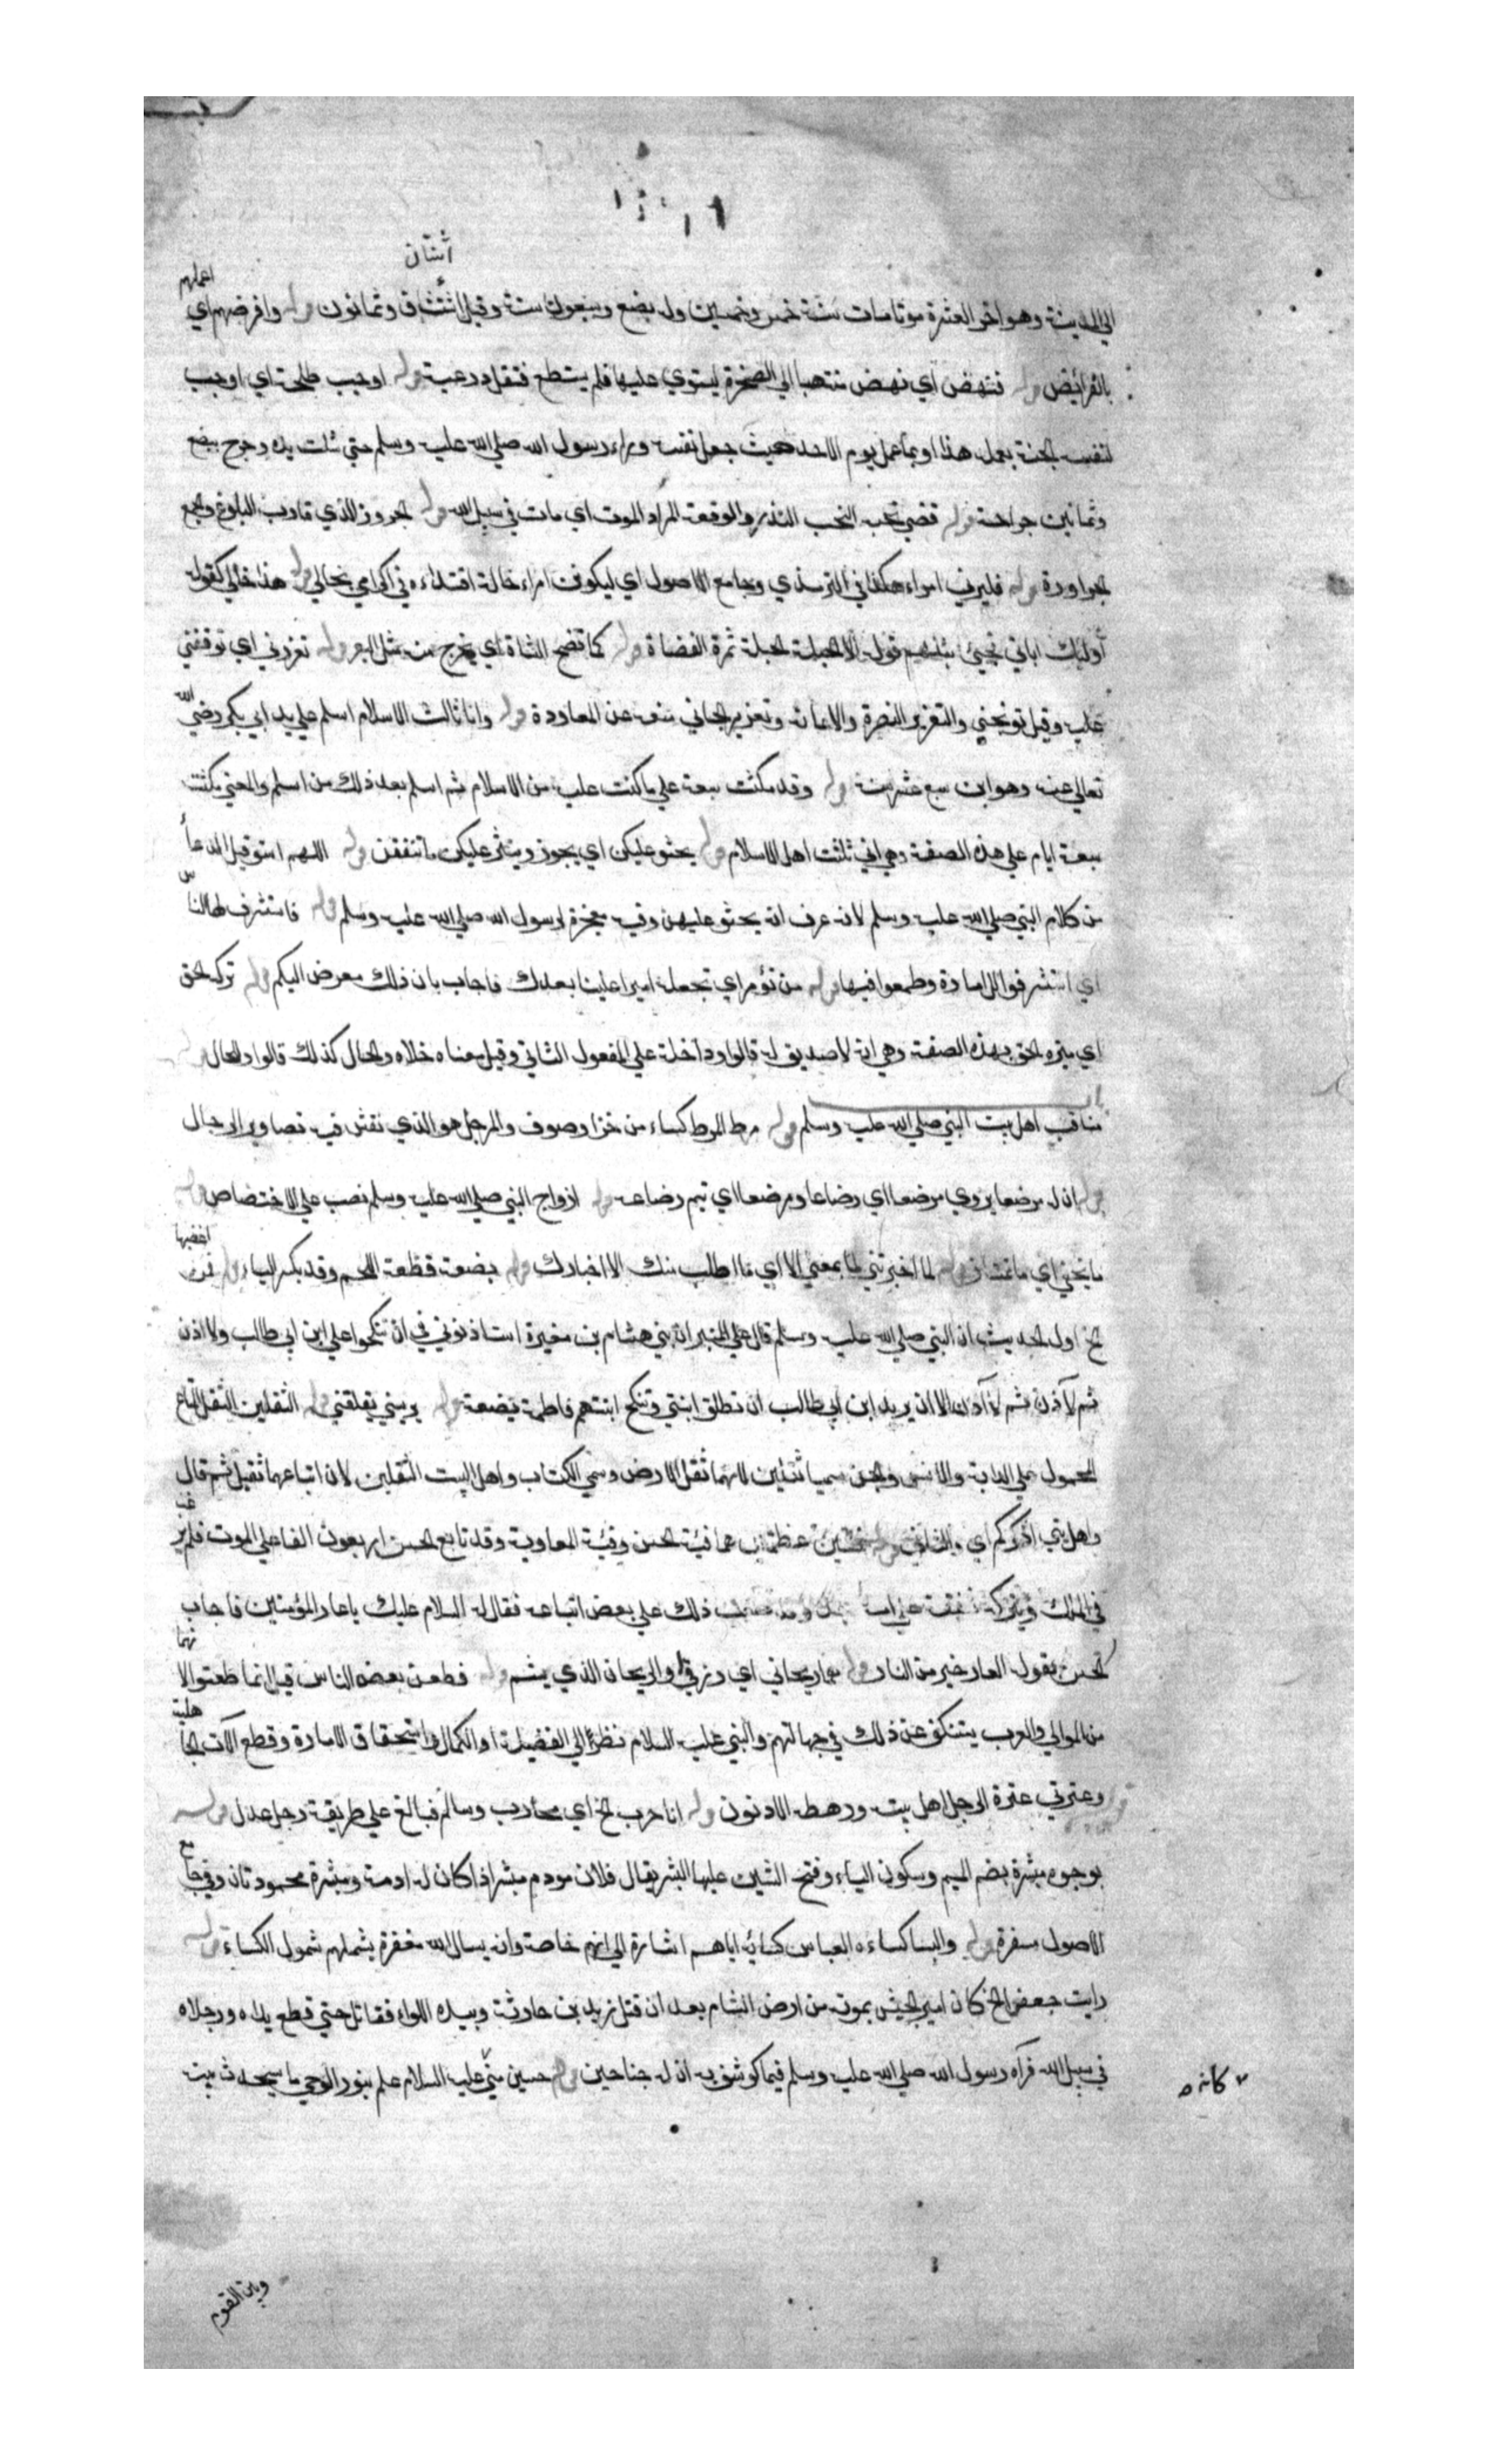 اثنتان
الي المدينة وهو اخر العشرة موتا مات سنة خمس وخمسين وله بضع وسبعون سنة وقيل اثنتان وثمانون قوله وافرضهم اي اعملهم
بالفرائض قوله فنهض اي نهض منتهيا الي الصخرة ليستوي عليها فلم يستطع فثقل درعيه قوله اوجب طلحة اي اوجب
لنفسه الجنة بعمله هذا او بما عمل يوم الاحد حيث جعل نفسه وراء رسول الله صلي الله عليه وسلم حتي شلت يده وجرح ببضع
وثمانين جراحة قوله قضي نحبه النحب النذر والوقعة المراد الموت اي مات في سبيل الله قوله الحرور الذي قارب البلوغ والجمع
قوله فليرني امراء هكذا في الترمذي وجامع الاصول اي ليكونن امراء خالة اقتداءه في اكرامي بخالي قوله هذا خالي كقوله
اولئك ابائي فجئني بمثلهم قوله الا الحبلة الحبلة ثمرة الفضاة قوله كما تضع الشاة اي يخرج منه مثل البعر قوله تعزرني اي توقفني
عليه وقيل توبخني والتعزير النصرة والاعانة وتعزير الجاني منعه عن المعاودة قوله وانا ثالث الاسلام اسلم علي يد ابي بكر رضي الله
تعالي عنه وهو ابن سبع عشر سنة قوله وقد مكثت سبعة علي ما كنت عليه من الاسلام ثم اسلم بعد ذلك من اسلم والمعني مكثت
سبعة ايام علي هذه الصفة وهي اني ثلثت اهل الاسلام قوله يحثو عليكن اي يجوز وينثر عليكن ما تنفقن قوله اللهم استق قيل الدعاء
من كلام النبي صلي الله عليه وسلم لانه عرف انه يحثو عليهن وفيه معجزة لرسول الله صلي الله عليه وسلم قوله فاستشرف لها الناس
اي استشرفوا للامارة وطمعوا فيها قوله من نؤمر اي تجعله اميرا علينا بعدك فاجاب بان ذلك معرض اليكم قوله تركه الحق
اي ميزه الحق بهذه الصفة وهي انه لا صديق له قالوا وداخلة علي المفعول الثاني وقيل معناه خلاه والحال كذلك قالوا وللحال
مناقب اهل بيت النبي صلي الله عليه وسلم قوله مرط المرط كساء من خز او صوف والمرحل هو الذي نقش فيه تصاوير الرحال
قوله ان له مرضعا يروي مرضعا اي رضاعا ومرضعا اي تتم رضاعه قوله ازواج النبي صلي الله عليه وسلم نصب علي الاختصاص قوله
ما تخفي اي ما قوله لما اخبرتني لما بمعني الا اي ما اطلب منك الا اخبارك قوله بضعة قطعة اللحم وقد يكسر الباء قوله اغضبها
الخ اول الحديث ان النبي صلي الله عليه وسلم قال علي المنبر ان بني هشام بن مغيرة استاذنوني في ان تنكحوا علي ابن ابي طالب ولا اذن
ثم لا آذن ثم لا آذن الا ان يريد ابن ابي طالب ان تطلق ابنتي وتنكح ابنتهم فاطمة بضعة قوله يريبني يقلقني قوله الثقلين الثقل المتاع
المحمول علي الدابة والانس والجن سميا ثقلين لانهما ثقل الارض وسمي الكتاب واهل البيت الثقلين لان اتباعهما ثقيل ثم قال
واهل بيتي اذكركم اي قوله فئتين عظيمتين هما فئة الحسن وفئة المعاوية وقد تابع الحسن اربعون الفا علي الموت فلم يرغب
في الملك وتركه شفقة علي امة ذلك علي بعض اتباعه فقال له السلام عليك يا عار المؤمنين فاجاب
الحسن بقوله العار خير من النار قوله هما ريحاني اي رزقي او الريحان الذي يشم قوله فطعن بعض الناس قيل انما طعنوا لانهما
من الموالي والعرب يستنكف عن ذلك في جهالتهم والنبي عليه السلام نظر الي الفضيلة او الكمال واستحقاق الامارة وقطع الآت الجاهلية
وعترتي عترة الرجل اهل بيته ورهطه الادنون قوله انا حرب الخ اي محارب وسالم فبالغ علي طريقة رجل عدل قوله
بوجوه مبشرة بضم الميم وسكون الباء وفتح الشين عليها البشر يقال فلان مودم مبشر اذا كان له ادمة وبشرة محمودتان وفي جامع
الاصول مسفرة قوله والبسا كساءه العباس كسائه اياهم اشارة الي انهم خاصة وانه يسال الله مغفرة يشملهم شمول الكساء قوله
رايت جعفر الخ كان امير الجيش بموتة من ارض الشام بعد ان قتل زيد بن حارثة وبيده اللواء فقاتل حتي قطع يداه ورجلاه
في سبيل الله فرآه رسول الله صلي الله عليه وسلم فيما كوشف به ان له جناحين قوله حسين مني عليه السلام علم بنور الوحي ما سيحدث بينه
كانه
وبين القوم